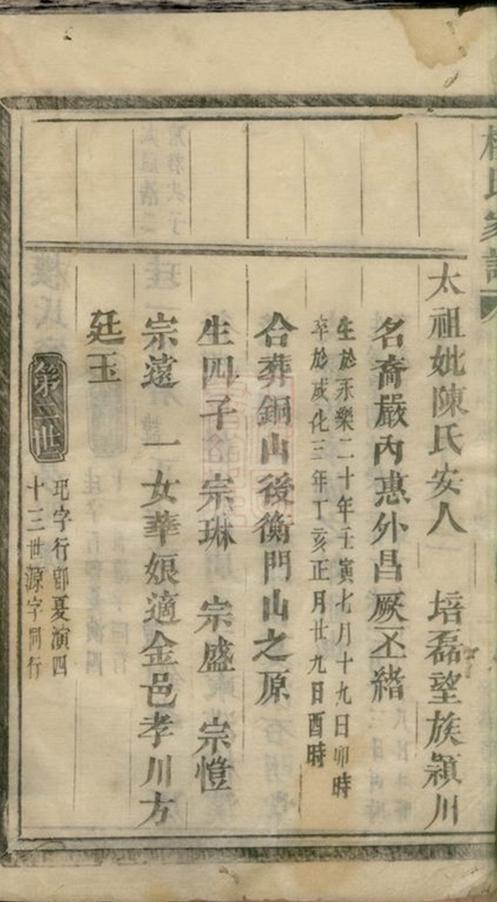 太祖妣陳氏安人　培磊望族潁川
名裔嚴內惠外昌厥丕緒
生於永樂二十年壬寅七月十九日卯時
卒於成化三年丁亥正月廿九日酉時
合葬銅山後衡門山之原
生四子　宗琳　宗盛　宗愷
宗遠　一女華娘適金邑孝川方
廷玉
第三世
玘字行鄣夏演四
十三世源字同行